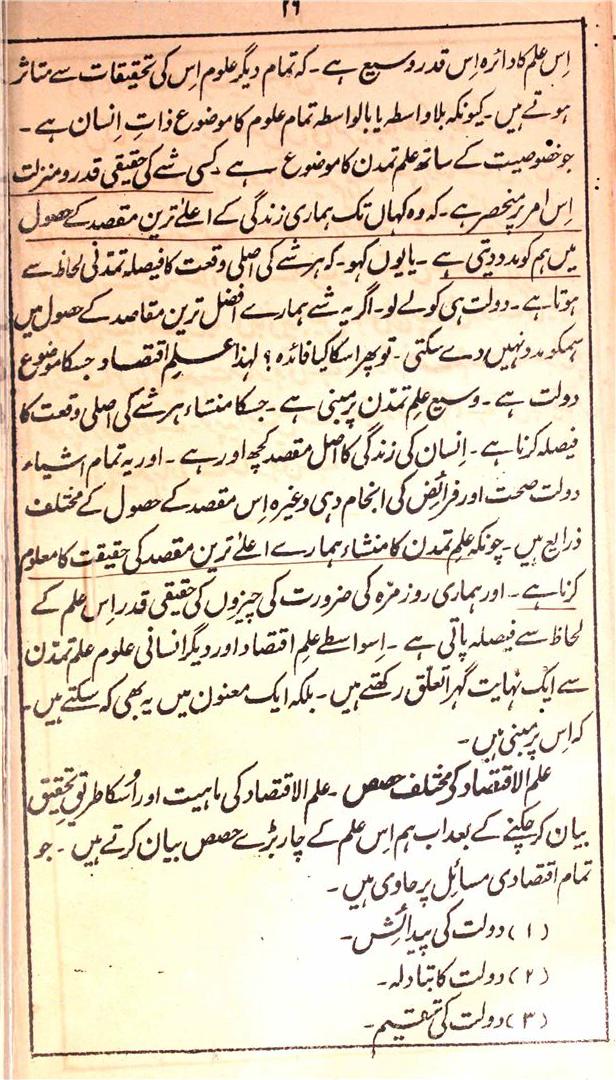 ۲۶
اِس علم کا دائرہ اِس قدر وسیع ہے ۔ کہ تمام دیگر علوم اِس کی تحقیقات سے متاثر
ہوتے ہیں ۔ کیونکہ بلا واسطہ یا بالواسطہ تمام علوم کا موضوع ذاتِ اِنسان ہے ۔
جو خصوصیت کے ساتھ علم تمدن کا موضوع ہے ۔ کسی شے کی حقیقی قدر و منزلت
اِس امر پر منحصر ہے ۔ کہ وہ کہاں تک ہماری زندگی کے اعلےٰ ترین مقصد کے حصول
میں ہم کو مدد دیتی ہے ۔ یا یوں کہو ۔ کہ ہر شے کی اصلی وقعت کا فیصلہ تمدنی لحاظ سے
ہوتا ہے ۔ دولت ہی کو لے لو ۔ اگر یہ شے ہمارے افضل ترین مقاصد کے حصول میں
ہمکو مدد نہیں دے سکتی ۔ تو پھر اسکا کیا فائدہ ؟ لہذا علم اقتصاد جسکا موضوع
دولت ہے ۔ وسیع علم تمدّن پر مبنی ہے ۔ جسکا منشاء ہر شے کی اصلی وقعت کا
فیصلہ کرنا ہے ۔ اِنسان کی زندگی کا اصل مقصد کچھ اور ہے ۔ اور یہ تمام اشیاء
دولت صحت اور فرائض کی انجام دہی وغیرہ اِس مقصد کے حصول کے مختلف
ذرایع ہیں ۔ چونکہ علم تمدن کا منشاء ہمارے اعلےٰ ترین مقصد کی حقیقت کا معلوم
کرنا ہے ۔ اور ہماری روز مرّہ کی ضرورت کی چیزوں کی حقیقی قدر اِس علم کے
لحاظ سے فیصلہ پاتی ہے ۔ اِسواسطے علم اقتصاد اور دیگر انسانی علوم علم تمدّن
سے ایک نہایت گہرا تعلّق رکھتے ہیں ۔ بلکہ ایک معنون میں یہ بھی کہ سکتے ہیں ۔
کہ اِس پر مبنی ہیں ۔
علم الاقتصاد کی مختلف حصص ۔ علم الاقتصاد کی ماہیت اور اُسکا طریق تحقیق
بیان کر چکنے کے بعد اب ہم اِس علم کے چار بڑے حصص بیان کرتے ہیں ۔ جو
تمام اقتصادی مسائل پر حاوی ہیں ۔
(۱) دولت کی پیدائش ۔
(۲) دولت کا تبادلہ ۔
(۳) دولت کی تقسیم ۔